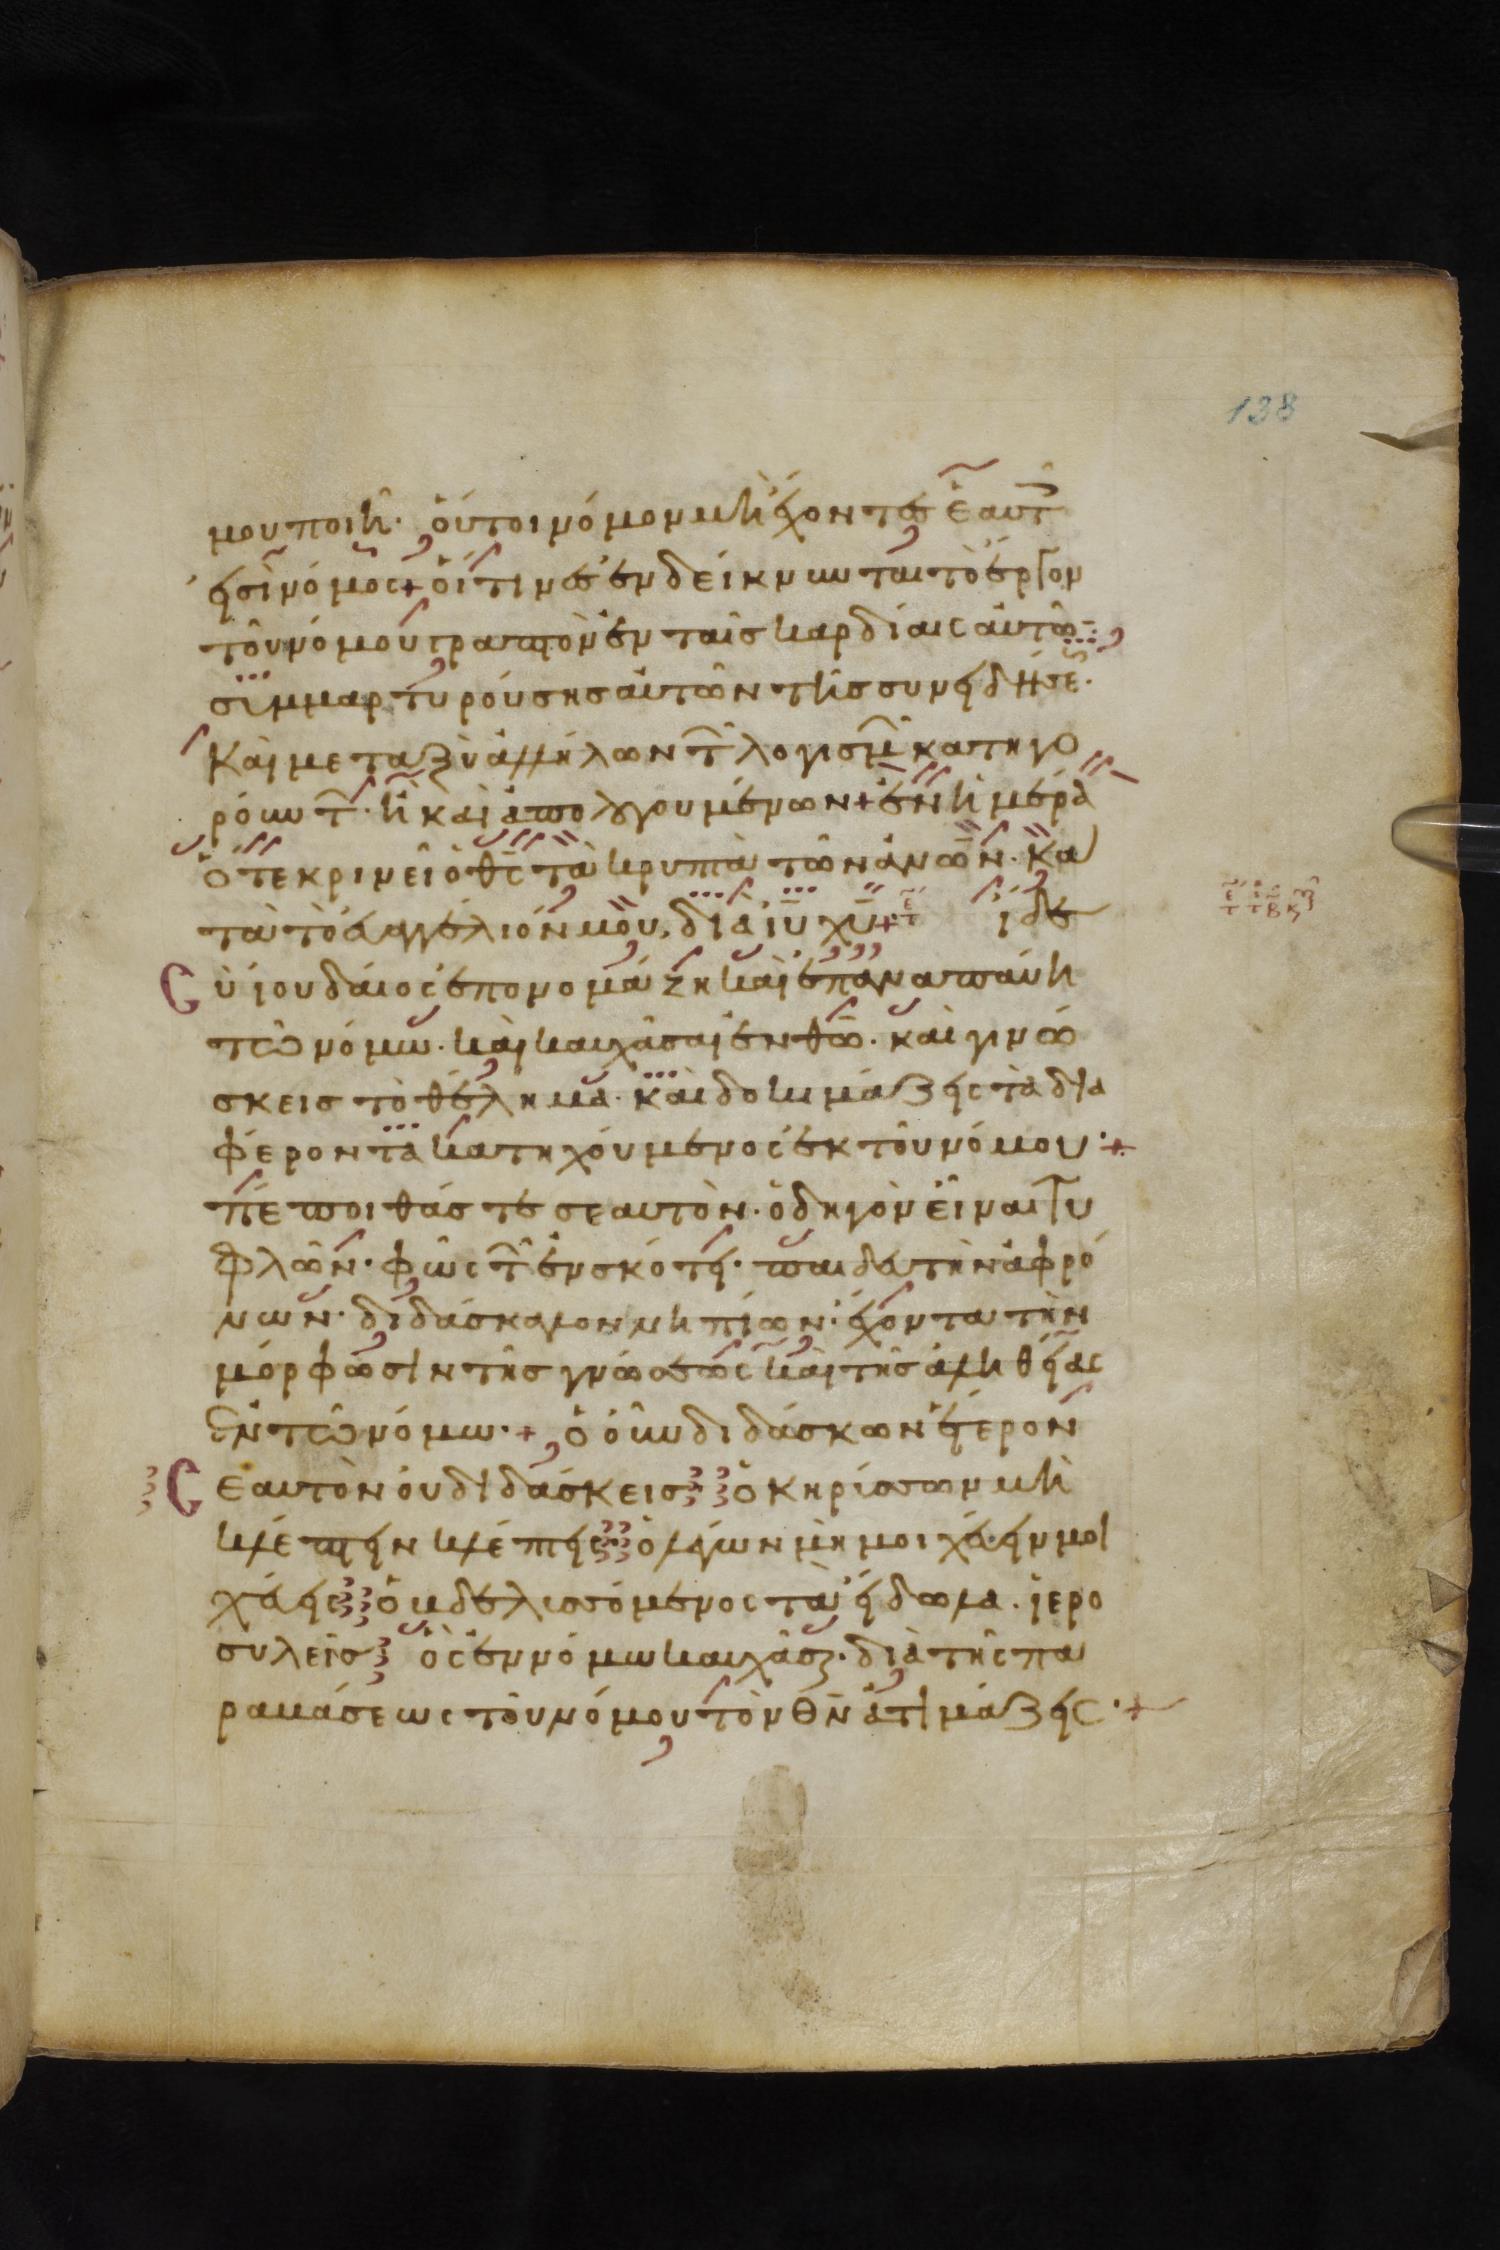 138
μου ποιῆ· οὗτοι νόμον μὴ ἔχοντες ἑαυτ
εἰσὶ νόμος + οἵτινες ἐνδείκνυνται τὸ ἔργον
τοῦ νόμου γραπτὸν ἐν ταῖς καρδίαις αὐτῶ·
συμμαρτυρούσης αὐτῶν τῆς συνειδήσε·
Καὶ μεταξὺ ἀλλήλων τ λογισμ κατηγο
ρούντ· ἢ καὶ ἀπολογουμένων + ἐν ἡμέρα
ὅτε κρινεῖ ὁ θς τὰ κρυπτὰ τῶν ἀνων· κα
τὰ τὸ εὐαγγέλιόν μου, διὰ ιυ χυ +
Cὺ ἰουδαῖος ἐπονομάζη καὶ ἐπαναπαύη
τῶ νόμω· καὶ καυχᾶσαι ἐν θω· καὶ γινώ
σκεις τὸ θέλημα· καὶ δοκιμάζεις τὰ δια
φέροντα κατηχούμενος ἐκ τοῦ νόμου·+
πέποιθάς τε σεαυτὸν· ὁδηγὸν εἶναι τυ
φλῶν· φῶς τ ἐν σκότει· παιδευτὴν ἀφρό
νων· διδάσκαλον νηπίων· ἔχοντα τὴν
μόρφωσιν τῆς γνώσεως καὶ τῆς ἀληθείας
ἐν τῶ νόμω·+ ὁ οὖν διδάσκων ἕτερον
Cεαυτὸν οὐ διδάσκεις· ὁ κηρύσσων μὴ
κλέπτειν κλέπτεις· ὁ λέγων μὴ μοιχεύειν μοι
χεύεις ὁ βδελυσσόμενος τὰ εἴδωλα· ἱερο
συλεῖς ὃς ἐν νόμω καυχᾶσαι· διὰ τῆς πα
ραβάσεως τοῦ νόμου τὸν θν ἀτιμάζεις·+